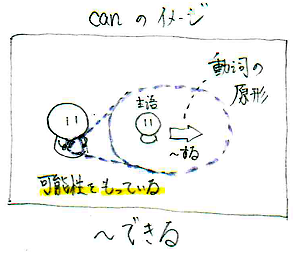 can のイメージ
動詞の
原形
主語
〜する
可能性をもっている
〜できる